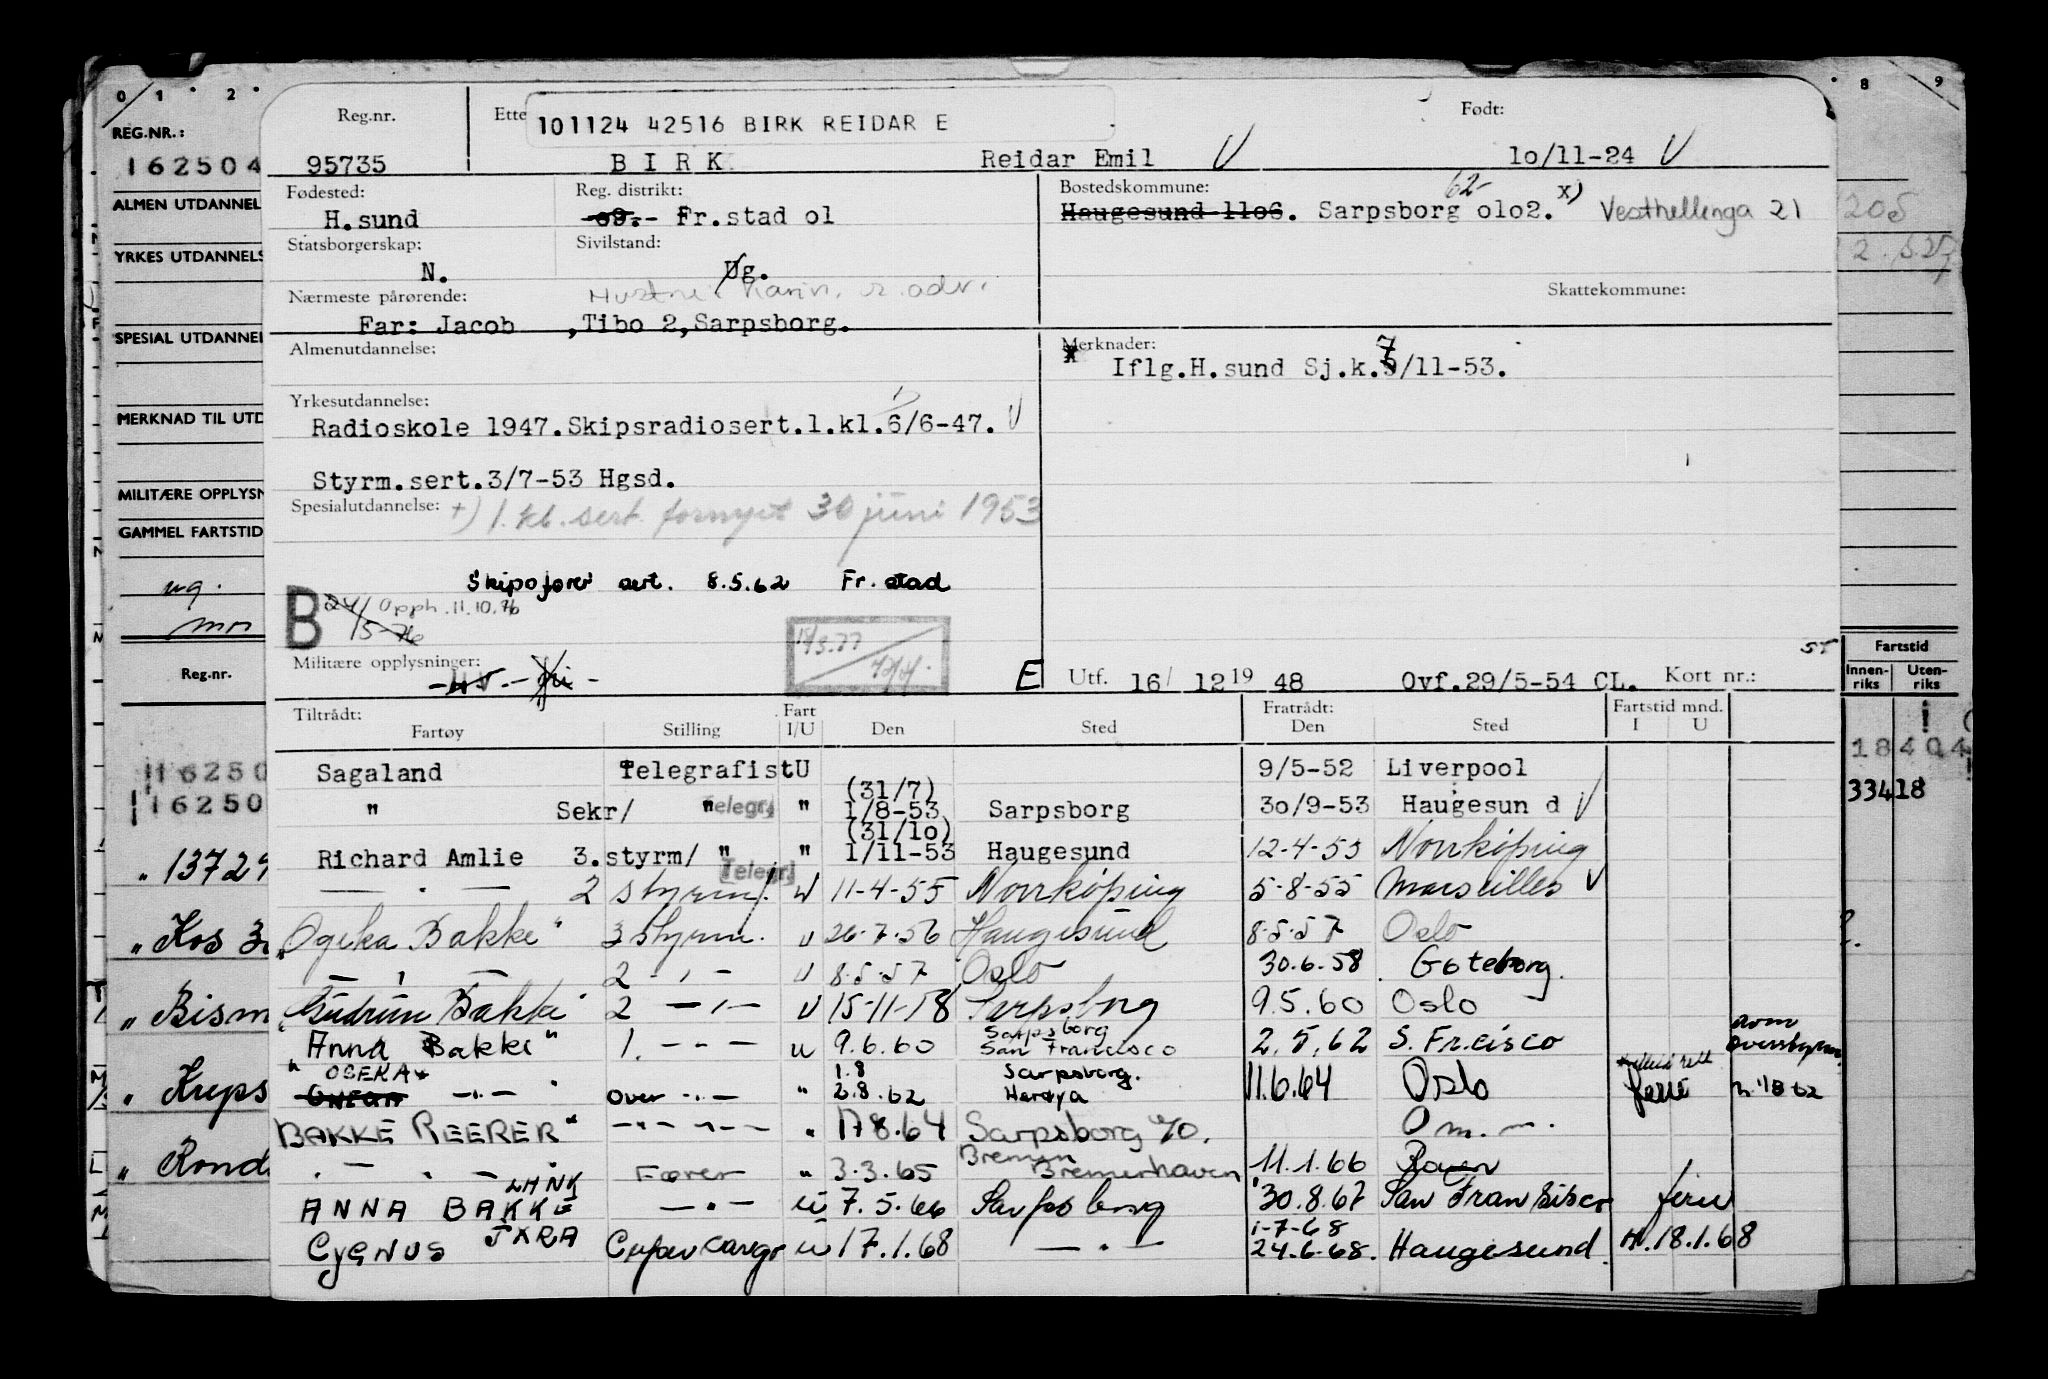 0 1 2 8 9
REG.NR.:
162504
ALMEN UTDANNEL
YRKES UTDANNELS
SPECIAL UTDANNEL
MERKNAD TIL UTD
MILITÆRE OPPLYSN
GAMMEL FARTSTID
ug.
Reg.nr.
16250
16250
" 13729
" Kos
" Bism
" Kreps
" Rond
Reg.nr. Ette 101124 42516 BIRK REIDAR E Født:
95735 BIRK Reidar Emil V 10/11-24 V
Fødested: Reg. distrikt: Bostedskommune: 62-
H.sund 09.-- Fr.stad 01 Haugesund 1106. Sarpsborg 0102. x) Vesthellinga 21
Statsborgerskap: Sivilstand:
N. Ug.
Nærmeste pårørende: Hustru: Karin, s. adr. Skattekommune:
Far: Jacob ,Tibo 2,Sarpsborg.
Almenutdannelse: Merknader:
x Iflg.H.sund Sj.k.7/11-53.
Yrkesutdannelse:
Radioskole 1947.Skipsradiosert.1.kl.6/6-47. V
Styrm.sert.3/7-53 Hgsd.
Spesialutdannelse: +) 1.kl.sert. fornyet 30 juni 1953
Skipsfører sert. 8.5.62 Fr.stad
B 24/5-76 Opph.11.10.76
Militære opplysninger: E Utf. 16/ 12 19 48 Ovf.29/5-54 CL. Kort nr.:
Tiltrådt: Fart Fratrådt: Fartstid mnd.
Fartøy Stilling I/U Den Sted Den Sted I U
Sagaland Telegrafist U 9/5-52 Liverpool
(31/7)
" Sekr/ " Telegr. " 1/8-53 Sarpsborg 30/9-53 Haugesund V
(31/10)
Richard Amlie 3.styrm/ " Telegr. " 1/11-53 Haugesund 12-4-55 Norrköping
— " — 2 styrm/ U 11-4-55 Norrköping 5-8-55 Marseilles V
"Ogeka Bakke" 3 styrm. U 26-7-56 Haugesund 8-5-57 Oslo
— " — 2 - " - U 8-5-57 Oslo 30.6.58 Göteborg.
"Gudrun Bakke" 2 — " — U 15-11-58 Sarpsborg 9.5.60 Oslo
"Anna Bakke" 1. - " - U 9.6.60 Sarpsborg San Francisco 2.5.62 S. Fr.cisco
" OGEKA — " — " Over - " - " 1.8 2.8.62 Sarpsborg. Herøya 11.6.64 Oslo ferie m. 1/8 62
BAKKE REEFER" — " — " — " 17.8.64 Sarpsborg O m. m.
" — " — Fører " 3.3.65 Bremen Bremerhaven 11.1.66
ANNA BAKKE — " — U 7.5.66 Sarpsborg 30.8.67 San Fransisco ferie
1-7-68
CYGNUS U 17.1.68 — " — 24.6.68. Haugesund m.18.1.68
Fartstid
Innen-riks Uten-riks
18404
33418